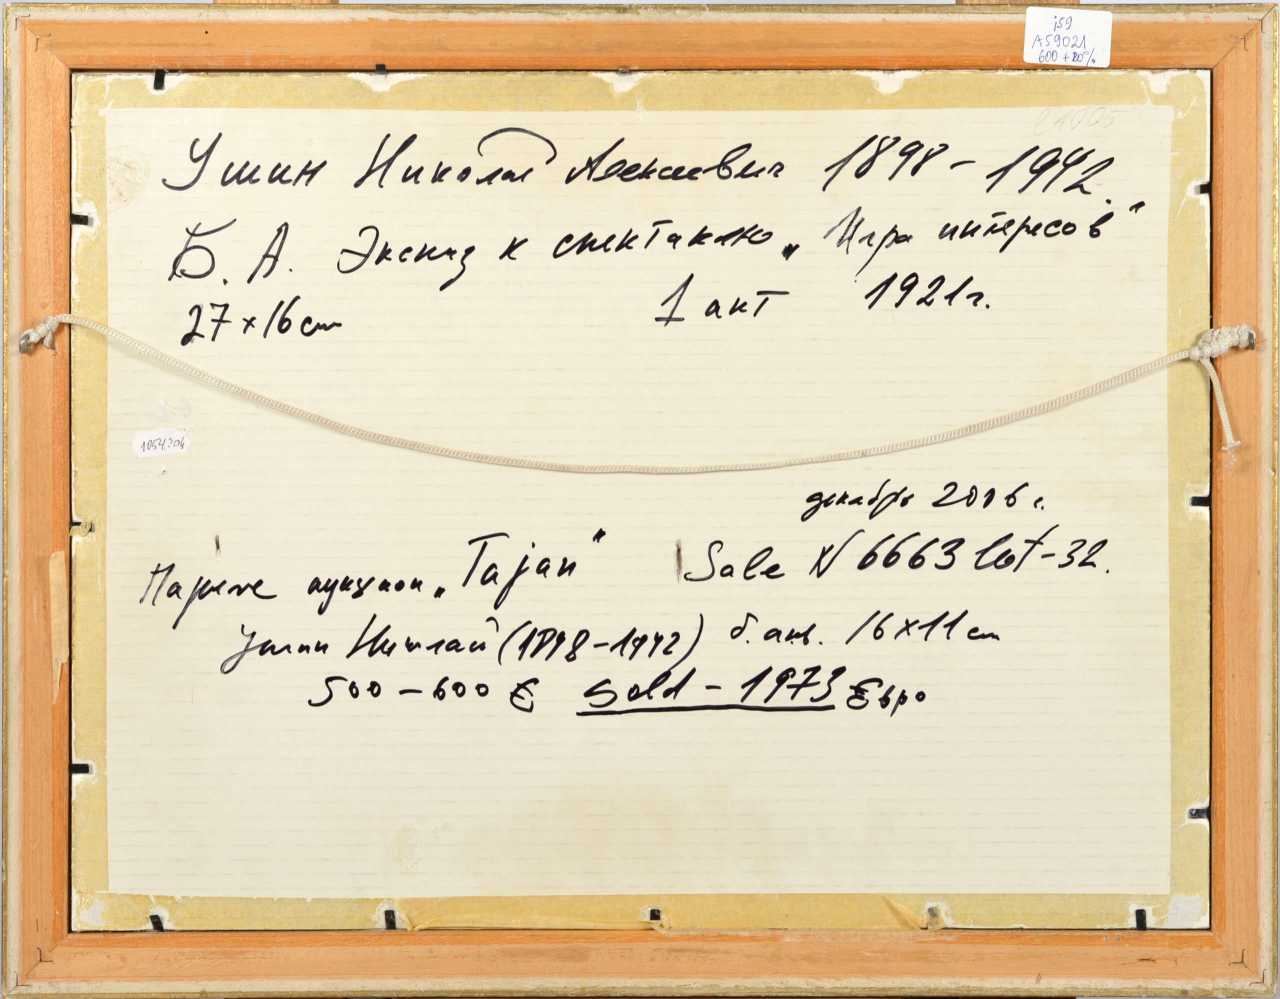 j59
A59021
600 + 20%
Ушин Николай Алексеевич 1898 - 1942.
Б. А. Эскиз к спектаклю „Игра интересов"
27 x 16 cm 1 акт 1921 г.
1054204
декабрь 2006 г.
Париж аукцион „Tajan" Sale N 6663 lot - 32.
Ушин Николай (1898 - 1942) б. акв. 16 x 11 cm
500 - 600 € Sold - 1973 Евро